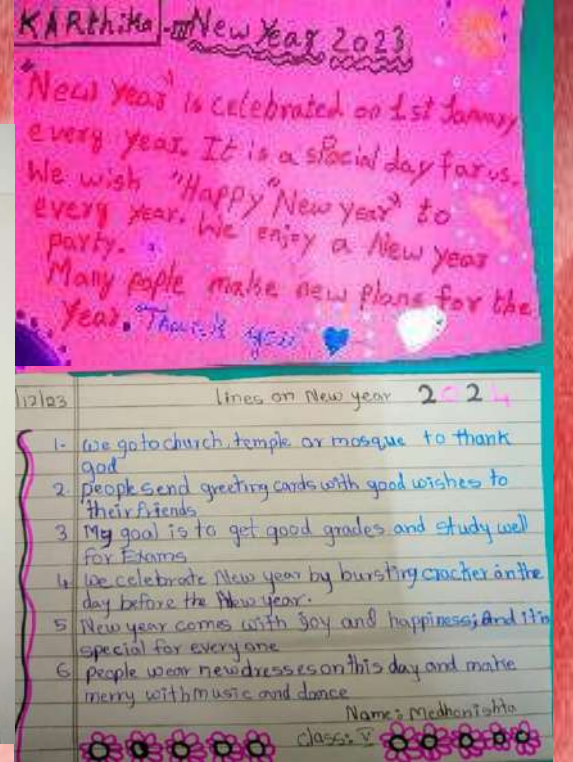 KARthika - III New Year 2023
"New Year" is celebrated on 1st January
every year. It is a special day for us.
We wish "Happy "New year" to
every year. We enjoy a New Year
party.
Many pople make new plans for the
Year. Thank you
12/23 lines on New year 2024
1- we go to church, temple or mosque to thank
god
2. people send greeting cards with good wishes to
their friends
3 My goal is to get good grades and study well
for Exams
4 we celebrate New year by bursting cracker on the
day before the New year.
5 New year comes with joy and happiness; and it is
special for everyone
6 people wear new dresses on this day and make
merry with music and dance
Name: Medhonishta
class: V